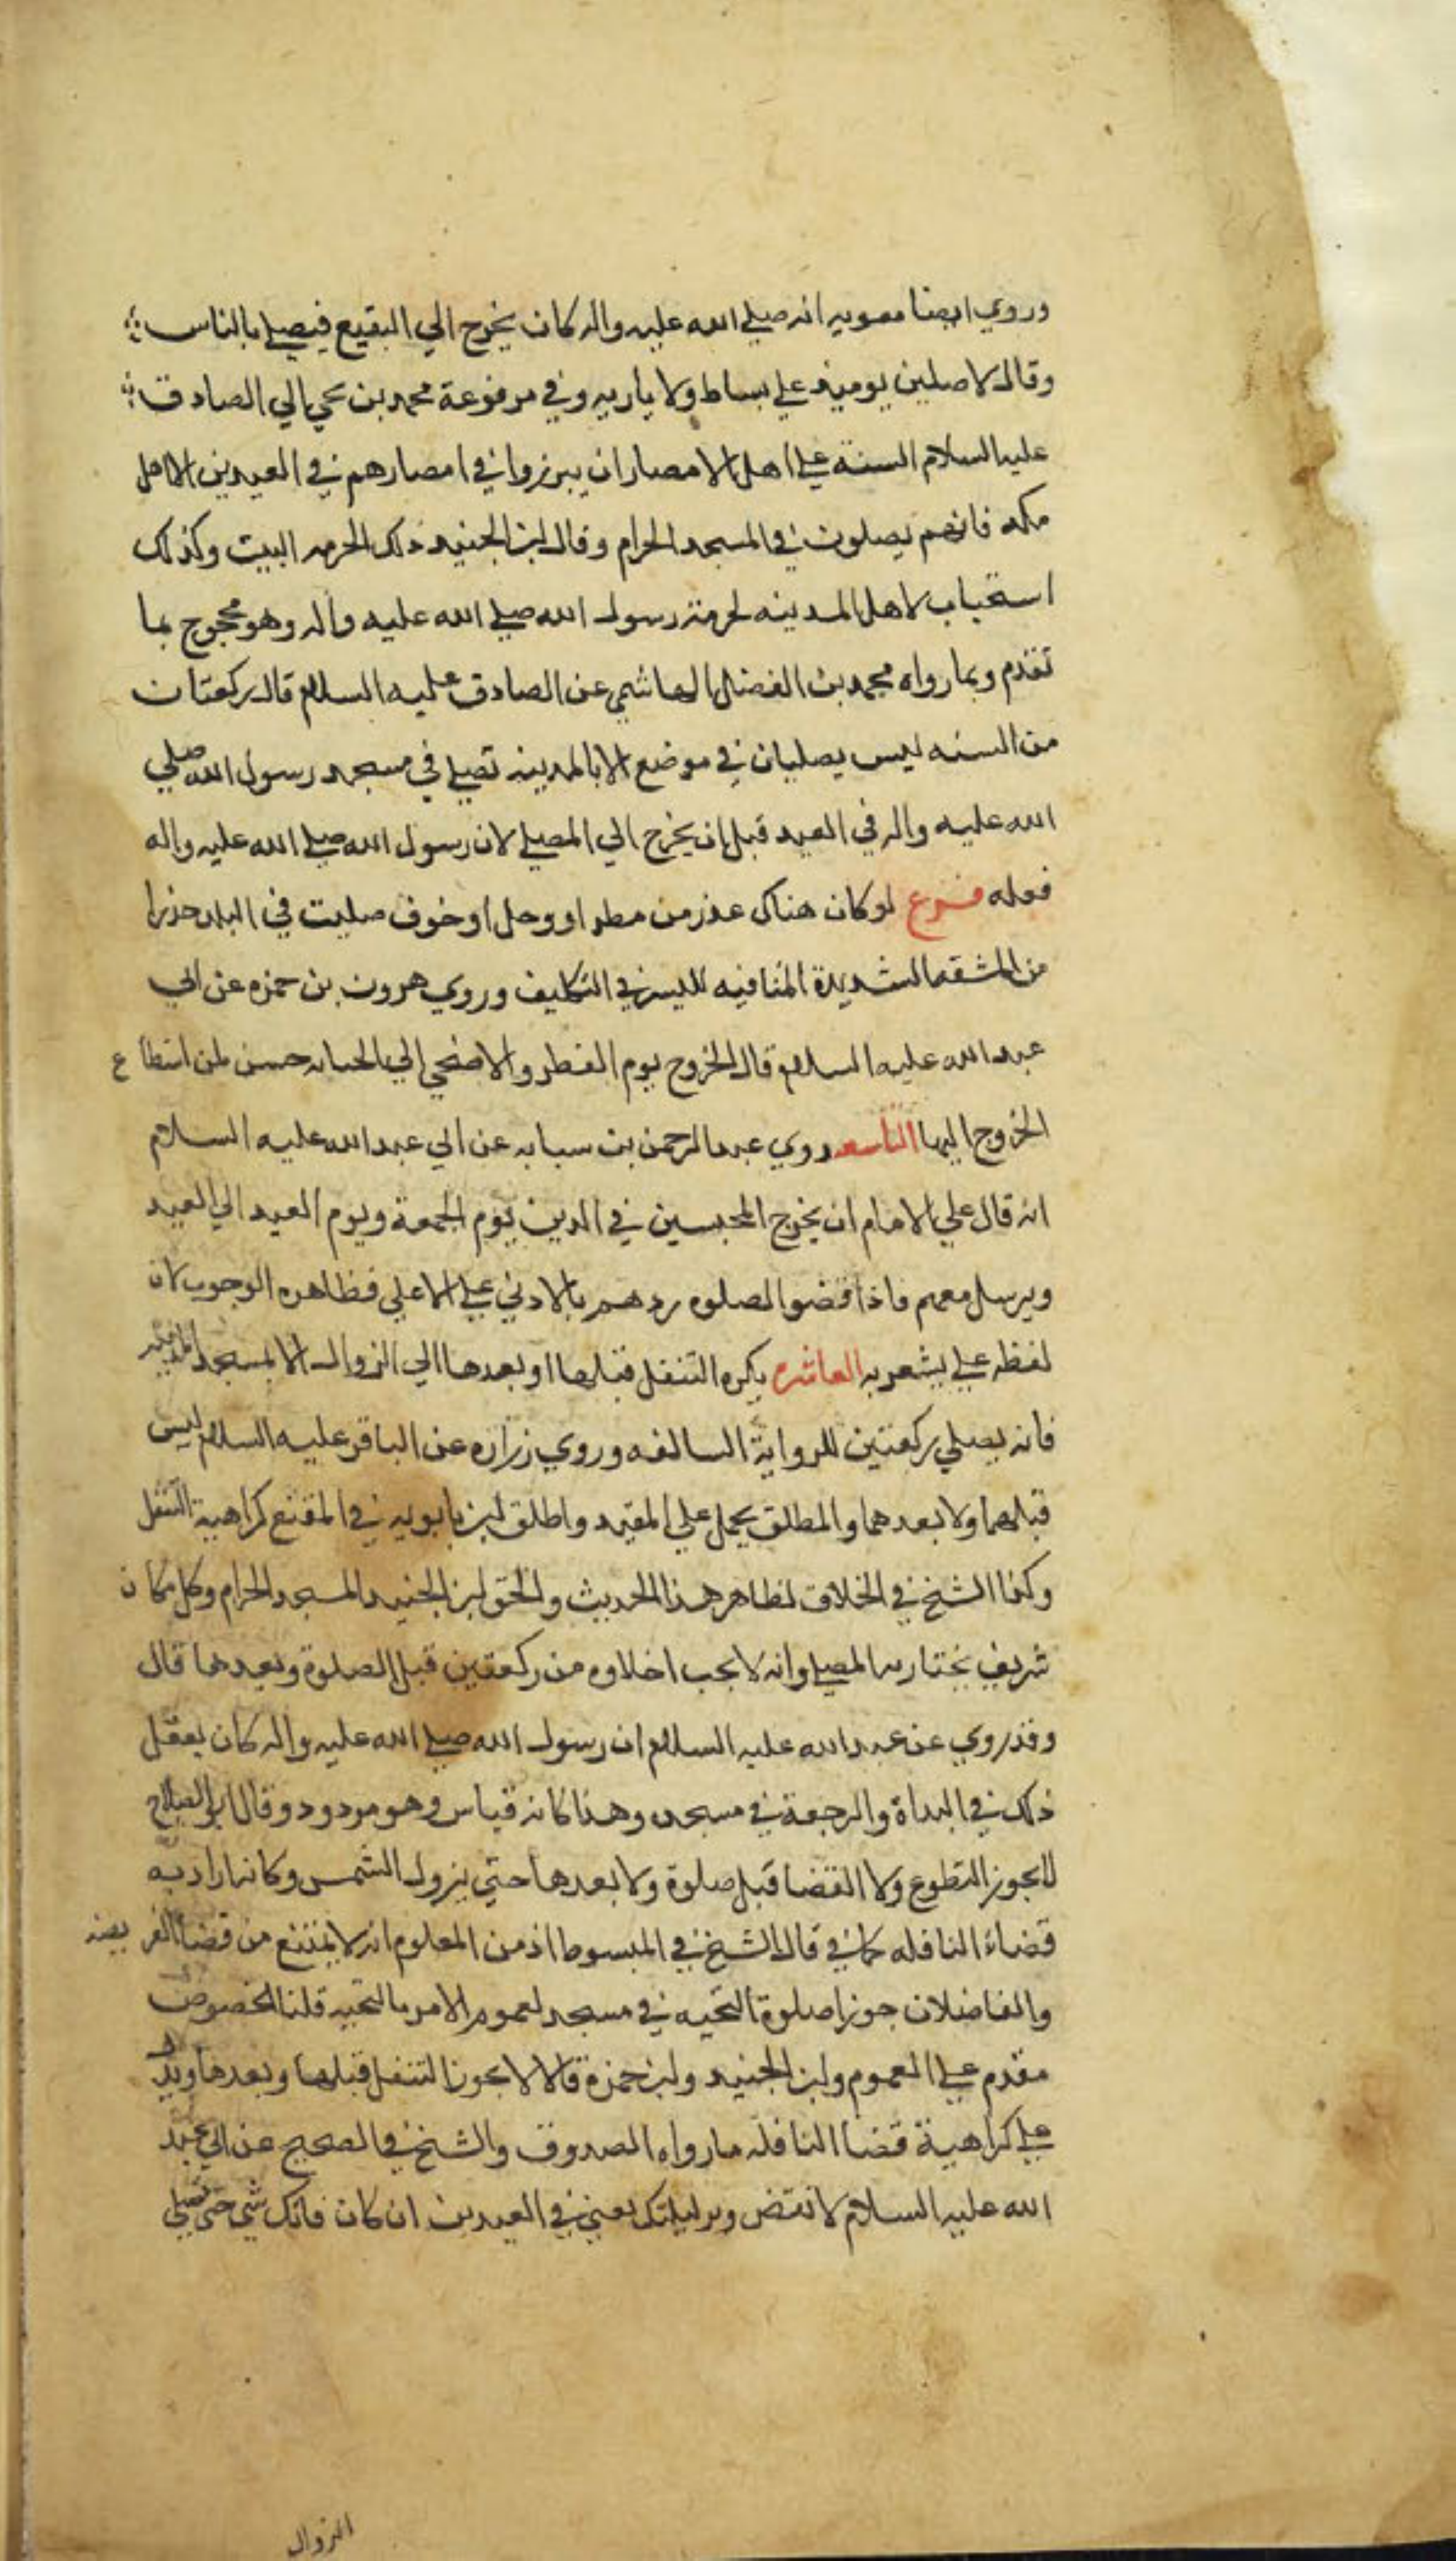 وروي ايضا معويه انه صلي الله عليه واله كان يخرج الي البقيع فيصلي بالناس
وقال لا صلين يوميذ علي بساط ولا بارية وفي مرفوعة محمد بن يحيى الي الصادق
عليه السلام السنة علي اهل الامصار ان يبرزوا في امصارهم في العيدين الا اهل
مكه فانهم يصلون في المسجد الحرام وقال ابن الجنيد ذلك لحرمه البيت وكذلك
استحباب لاهل المدينه لحرمة رسول الله صلي الله عليه واله وهو محجوج بما
تقدم وبما رواه محمد بن الفضل الهاشمي عن الصادق عليه السلام قال ركعتان
من السنه ليس يصليان في موضع الا بالمدينه تصلي في مسجد رسول الله صلي
الله عليه واله في العيد قبل ان يخرج الي المصلي لان رسول الله صلي الله عليه واله
فعله فرع لو كان هناك عذر من مطر او وحل او خوف صليت في البلد حذرا
من المشقه الشديدة المنافيه لليسر في التكليف وروي هرون بن حمزه عن ابي
عبد الله عليه السلام قال الخروج يوم الفطر والاضحي الي الجبانه حسن لمن استطاع
الخروج اليها التاسعه روي عبد الرحمن بن سيابه عن ابي عبد الله عليه السلام
انه قال علي الامام ان يخرج المحبسين في الدين يوم الجمعة ويوم العيد الي العيد
ويرسل معهم فاذا قضوا الصلوه ردهم بالادني علي الاعلي فظاهره الوجوب لان
لفظه علي يشعر به العاشره يكره التنفل قبلها او بعدها الي الزوال الا بمسجد المدينه
فانه يصلي ركعتين للرواية السالفه وروي زراره عن الباقر عليه السلام ليس
قبلهما ولا بعدهما والمطلق يحمل علي المقيد واطلق ابن بابويه في المقنع كراهية التنفل
وكذا الشيخ في الخلاف لظاهر هذا الحديث والحق ابن الجنيد المسجد الحرام وكل مكان
شريف يختار به المصلي وانه لا يجب اخلاوه من ركعتين قبل الصلوة وبعدها قال
وقد روي عن عبد الله عليه السلام ان رسول الله صلي الله عليه واله كان يفعل
ذلك في البداة والرجعة في مسجده وهذا كانه قياس وهو مردود وقال ابو الصلاح
لا يجوز التطوع ولا القضا قبل صلوة ولا بعدها حتي يزول الشمس وكانه اراد به
قضاء النافله كما في قال الشيخ في المبسوط اذ من المعلوم انه لا يمتنع من قضا الفريضه
والفاضلان جوزا صلوة التحيه في مسجد لعموم الامر بالتحيه قلنا الخصوص
مقدم علي العموم وابن الجنيد وابن حمزة قالا لا يجوز التنفل قبلها وبعدها ويدل
علي كراهية قضا النافله ما رواه الصدوق والشيخ في الصحيح عن ابي عبد
الله عليه السلام لا تقض وتر ليلتك يعني في العيدين ان كان فاتك شي حتي تصلي
الزوال